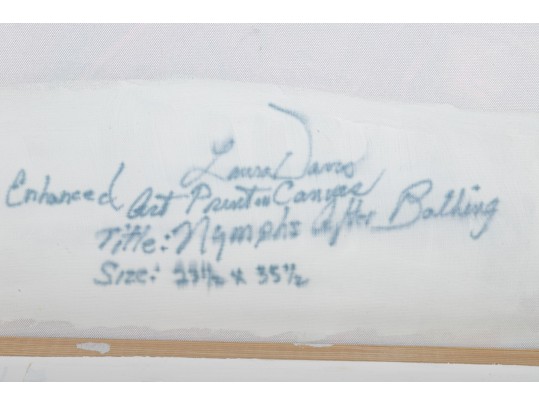 Laura Davis
Enhanced Art Print on Canvas
Title: Nymphs After Bathing
Size: x 35½